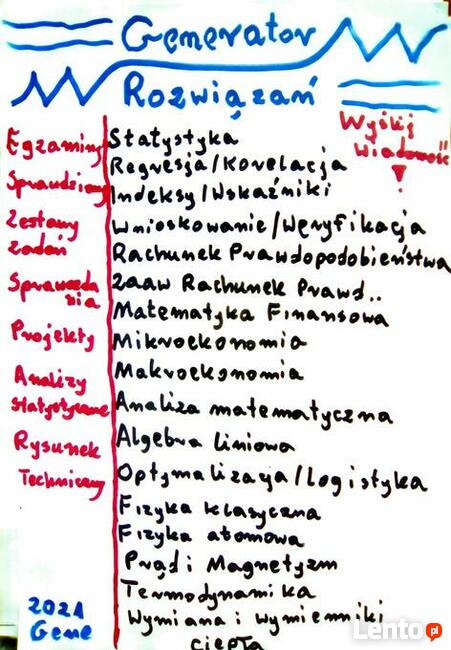 Generator
Rozwiązań
Wyślij
wiadomość
!
Egzaminy
Sprawdziany
Zestawy
zadań
Sprawozda
nia
Projekty
Analizy
statystyczne
Rysunek
Techniczny
Statystyka
Regresja/Korelacja
Indeksy/Wskaźniki
Wnioskowanie/Weryfikacja
Rachunek Prawdopodobieństwa
Zaaw Rachunek Prawd..
Matematyka Finansowa
Mikroekonomia
Makroekonomia
Analiza matematyczna
Algebra liniowa
Optymalizacja/Logistyka
Fizyka klasyczna
Fizyka atomowa
Prąd i Magnetyzm
Termodynamika
Wymiana i wymienniki
ciepła
2021
Gene
Lento.pl